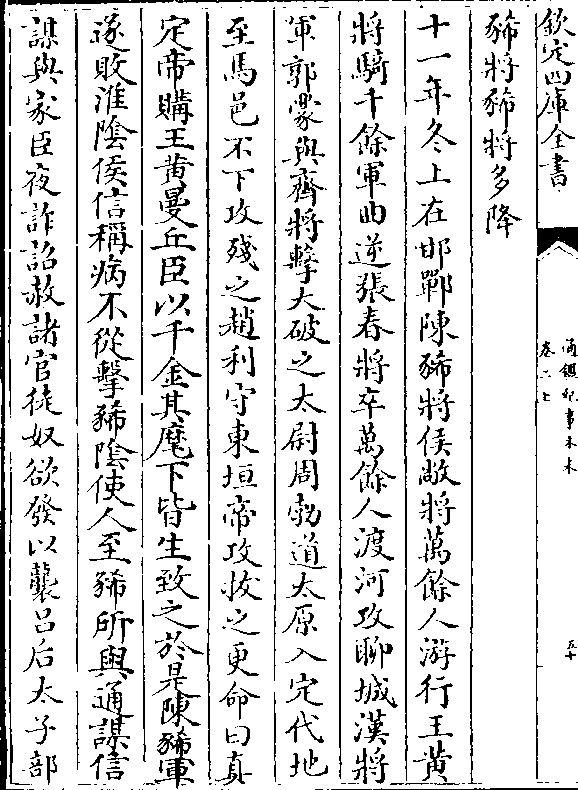 欽定四庫全書
通鑑紀事本末
卷二上
五十
豨將豨將多降
十一年冬上在邯鄲陳豨將侯敞將萬餘人游行王黃
將騎千餘軍曲逆張春將卒萬餘人渡河攻聊城漢將
軍郭蒙與齊將擊大破之太尉周勃道太原入定代地
至馬邑不下攻殘之趙利守東垣帝攻拔之更命曰真
定帝購王黃曼丘臣以千金其麾下皆生致之於是陳豨軍
遂敗淮陰侯信稱病不從擊豨陰使人至豨所與通謀信
謀與家臣夜詐詔赦諸官徒奴欲發以襲呂后太子部